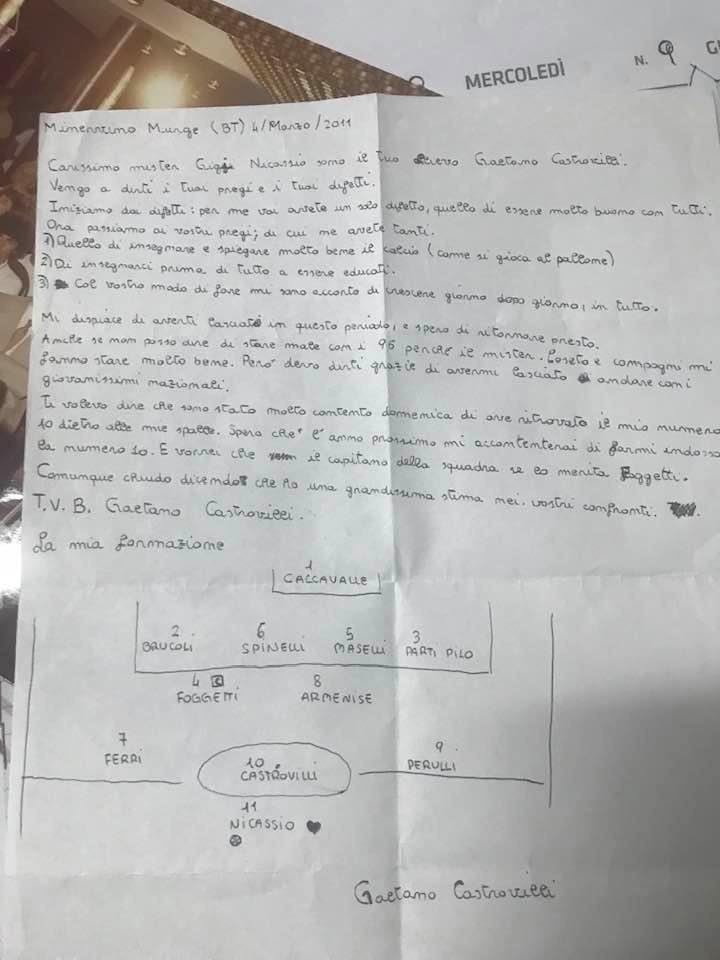 MERCOLEDÌ
N. 9
Minervino Murge (BT) 4/Marzo/2011
Carissimo mister Gigi Nicassio sono il tuo allievo Gaetano Castrovilli.
Vengo a dirti i tuoi pregi e i tuoi difetti.
Iniziamo dai difetti: per me voi avete un solo difetto, quello di essere molto buono con tutti.
Ora passiamo ai vostri pregi; di cui me avete tanti.
1) Quello di insegnare e spiegare molto bene il calcio (come si gioca al pallone)
2) Di insegnarci prima di tutto a essere educati.
3) Col vostro modo di fare mi sono accorto di crescere giorno dopo giorno, in tutto.
Mi dispiace di averti lasciato in questo periodo, e spero di ritornare presto.
Anche se non posso dire di stare male con i 96 perché il mister. Loseto e compagni mi
fanno stare molto bene. Però devo dirti grazie di avermi lasciato andare con i
giovanissimi nazionali.
Ti volevo dire che sono stato molto contento domenica di ave ritrovato il mio numero
10 dietro alle mie spalle. Spero che l'anno prossimo mi accontenterai di farmi indossa
la numero 10. E vorrei che il capitano della squadra se lo merita Foggetti.
Comunque chiudo dicendo che ho una grandissima stima nei. vostri confronti.
T.V.B. Gaetano Castrovilli.
La mia formazione
1
CACCAVALLE
2 6 5 3
BRUCOLI SPINELLI MASELLI PARTIPILO
4 C 8
FOGGETTI ARMENISE
7 9
FERRI PERULLI
10
CASTROVILLI
11
NICASSIO ♥
Gaetano Castrovilli